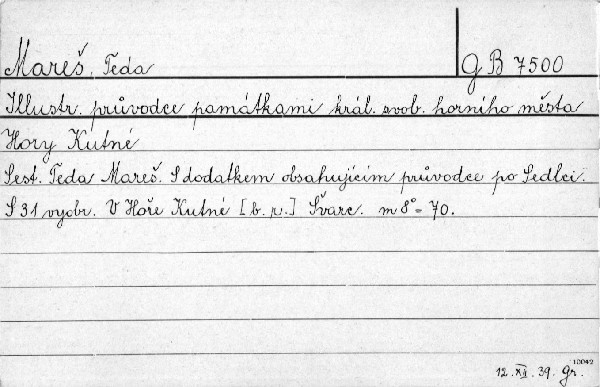 Mareš, Teda
G B 7500
Illustr. průvodce památkami král. svob. horního města
Hory Kutné
Sest. Teda Mareš. S dodatkem obsahujícím průvodce po Sedlci.
S 31 vyobr. V Hoře Kutné [b. r.] Švarc. m 8° - 70.
10042
12. XII. 39. Gr.